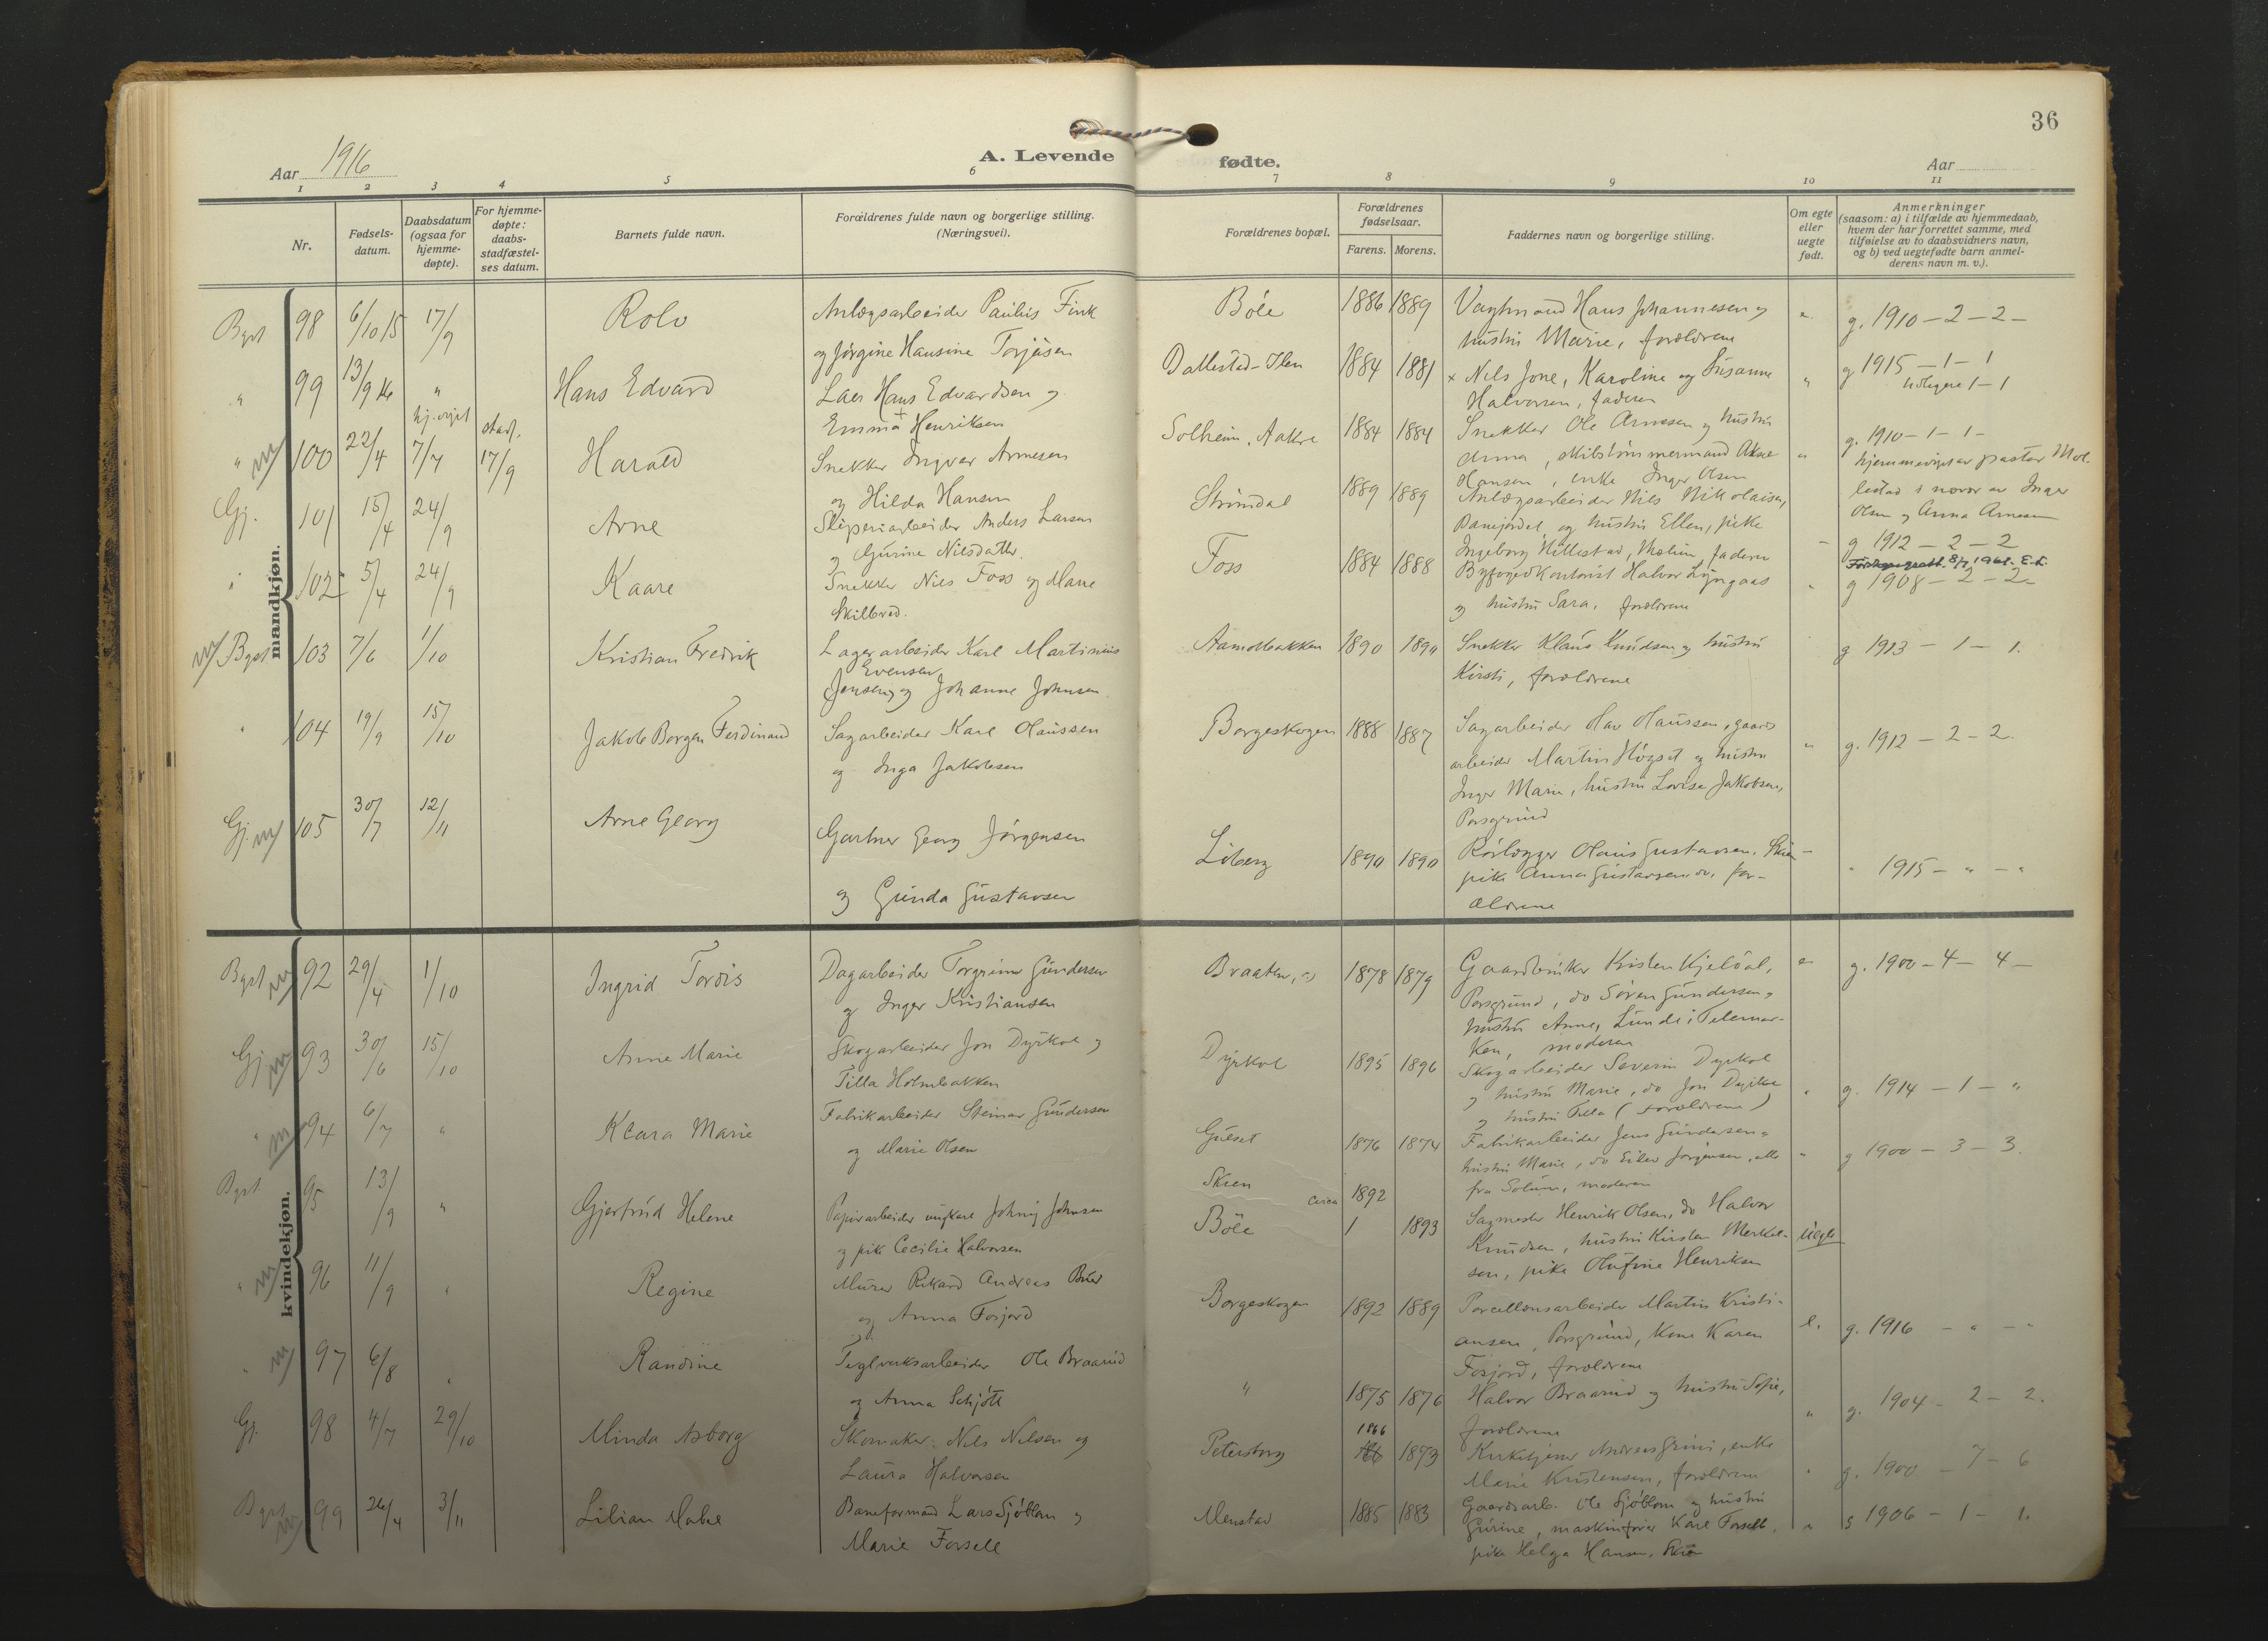 36
Aar 1916
A. Levende fødte.
Aar
1 2 3 4 5 6 7 8 9 10 11
Nr.
Fødsels-
datum.
Daabsdatum
(ogsaa for
hjemme-
døpte).
For hjemme-
døpte:
daabs-
stadfæstel-
ses datum.
Barnets fulde navn.
Forældrenes fulde navn og borgerlige stilling.
(Næringsvei).
Forældrenes bopæl.
Forældrenes
fødselsaar.
Farens. Morens.
Faddernes navn og borgerlige stilling.
Om egte
eller
uegte
født.
Anmerkninger
(saasom: a) i tilfælde av hjemmedaab,
hvem der har forrettet samme, med
tilføielse av to daabsvidners navn,
og b) ved uegtefødte barn anmel-
derens navn m. v.).
mandkjøn.
98 6/10 15 17/9 Rolv
Anlægsarbeider Paulus Fink
og Jørgine Hansine Torjusen
Böle 1886 1889
Vagtmand Hans Johannesen og
hustru Marie, forældrene
e. g. 1910 – 2 – 2 –
" 99 13/9 16 " Hans Edvard
Hans Edvardsen og
Emma Henriksen
1884 1881
Nils Jone, Karoline og Susanne
Halvorsen, faderen
" g 1915 – 1 – 1
1 – 1
" 100 22/4 7/7 stadf. 17/9 Harald
Snekker Ingvar Arnesen
og Hilda Hansen
Solheim, Aakre 1884 1884
Snekker Ole Arnesen og hustru
Anna,
Hansen, enke Inger Olsen
" g. 1910 – 1 – 1 –
hjemmedøpt av pastor Mol-
lestad i nærvær av Inger
Olsen og Anna Arnesen
Gj. 101 15/4 24/9 Arne
Sliperiarbeider Anders Larsen
og Gurine Nilsdatter.
Strömdal 1889 1889
Anlægsarbeider Nils Nikolaisen,
og hustru Ellen, pike
Ingeborg Hillestad, Melum, faderen
– g 1912 – 2 – 2
102 5/4 24/9 Kaare
Snekker Nils Foss og Maren
Skilbred.
Foss 1884 1888
Byfogedkontorist Halvor Lyngaas
og hustru Sara, forældrene
" g 1908 – 2 – 2 –
Bgst 103 7/6 1/10 Kristian Fredrik
Lagerarbeider Karl Martinius
Evensen
Jensen og Johanne Johnsen
1890 1890
Snekker Klaus Knudsen og hustru
Kirsti, forældrene
g 1913 – 1 – 1.
" 104 19/9 15/10 Jakob Borgen Ferdinand
Sagarbeider Karl Olaussen
og Inga Jakobsen
Borgeskogen 1888 1887
Sagarbeider Olav Olaussen, gaards
arbeider Martin Högset og hustru
Inger Marie, hustru Lovise Jakobsen,
Porsgrund
" g. 1912 – 2 – 2.
Gj. 105 30/7 12/11 Arne Georg
Gartner Georg Jörgensen
og Gunda Gustavsen
Liberg 1890 1890
Rörlægger Olaus Gustavsen, Skien
pike Anna Gustavsen do. for-
ældrene
– " 1915 – " – "
kvindekjøn.
Bgst 92 29/4 1/10 Ingrid Tordis
Dagarbeider Torgrim Gundersen
og Inger Kristiansen
Braaten, 1878 1879
Gaardbruker Kristen Kjeldal,
Porsgrund, do Sören Gundersen og
hustru Anne, Lunde i Telemar-
ken, moderen
e. g. 1900 – 4 – 4 –
Gj 93 30/6 15/10 Anne Marie
Skogarbeider Jon Dyrkol og
Tilla Holmbakken
Dyrkol 1895 1896
Skogarbeider Severin Dyrkol
og hustru Marie, do Jon Dyrkol
og hustru Tilla (forældrene)
" g. 1914 – 1 – "
" 94 6/7 " Klara Marie
Fabrikarbeider Steinar Gundersen
og Marie Olsen
Gulset 1876 1874
Fabrikarbeider Jens Gundersen og
hustru Marie, do Eilev Jörgensen, alle
fra Solum, moderen
" g 1900 – 3 – 3.
Bgst. 95 13/9 " Gjertrud Helene
Papirarbeider ungkarl Johnny Johnsen
og pike Cecilie Halvorsen
Skien circa 1892
Böle 1893
Sagmester Henrik Olsen, do Halvor
Knudsen, hustru Kirsten Merkel-
sen, pike Olufine Henriksen
uegte
" 96 11/9 " Regine
Murer Rikard Andreas
og Anna Fosjord
Borgeskogen 1892 1889
Porcellænsarbeider Martin Kristi-
ansen, Porsgrund, Kone Karen
Fosjord, forældrene
e. g. 1916 – " – "
" 97 6/8 " Randine
Teglverksarbeider Ole Braarud
og Anna Schjött
" 1875 1876
Halvor Braarud og hustru Sofie,
forældrene
" g. 1904 – 2 – 2.
Gj. 98 4/7 29/10 Minda Asborg
Skomaker Nils Nilsen og
Laura Halvorsen
Petersborg 1866 1873
Kirketjener Andreas Grini, enke
Marie Kristensen, forældrene
" g. 1900 – 7 – 6
Bgst 99 26/4 3/11 Lilian Mabel
Baneformand Lars Sjöblom og
Marie Forsell
Menstad 1885 1883
Gaardsarb. Ole Sjöblom og hustru
Gurine, maskinfører Karl Forsell,
pike Helga Hansen, Skien
" g 1906 – 1 – 1.